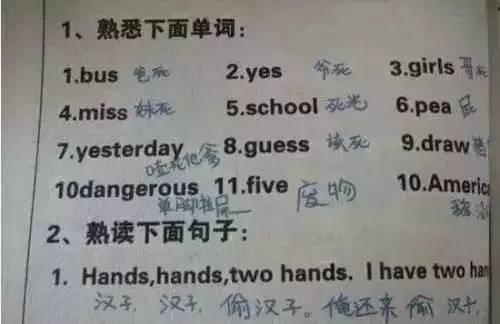 1、熟悉下面单词:
1.bus 死 2.yes 爷死 3.girls 哥死
4.miss 妹死 5.school 死光 6.pea 屁
7.yesterday 8.guess 该死 9.draw
他爹
10dangerous 11.five 废物 10.America
单脚拉屎
2、熟读下面句子:
1. Hands,hands,two hands. I have two han
汉子，汉子，偷汉子。俺还来偷汉子.